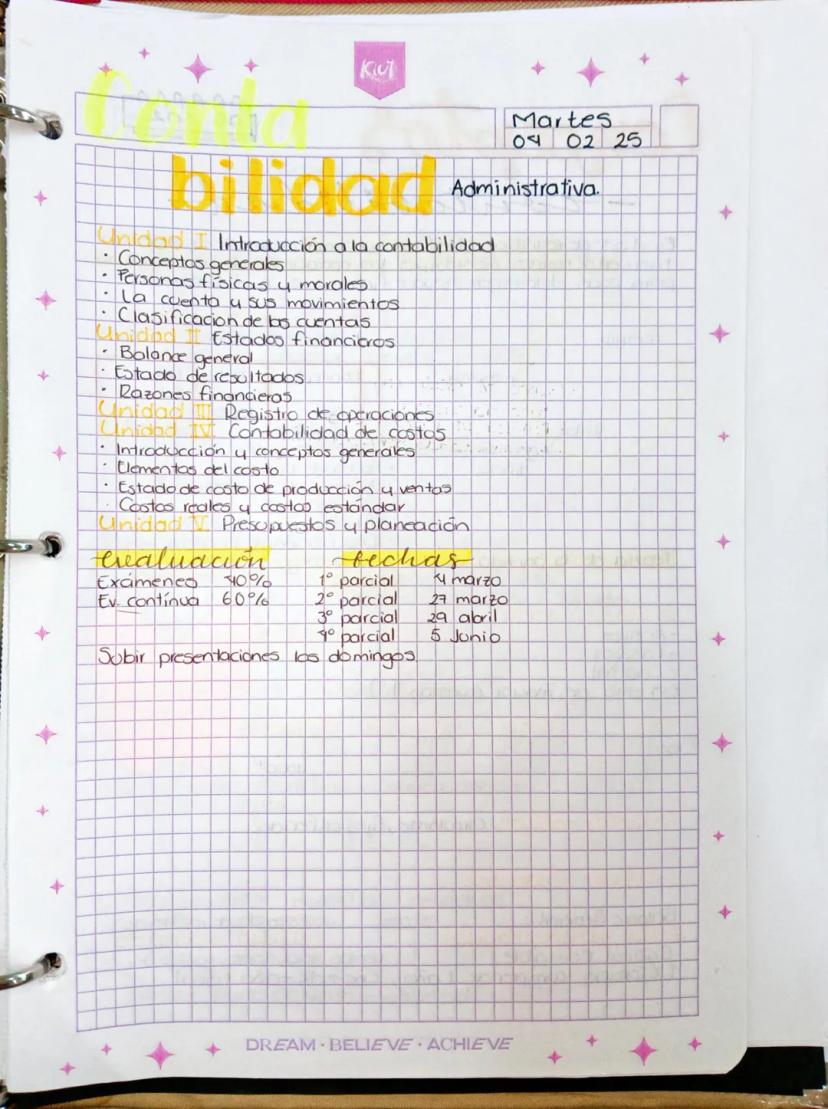 Kiut
Conta
Martes
04 02 25
bilidad Administrativa.
Unidad I Introducción a la contabilidad
· Conceptos generales
· Personas físicas y morales
· La cuenta y sus movimientos
· Clasificacion de las cuentas
Unidad II Estados financieros
· Balance general
· Estado de resultados
· Razones financieras
Unidad III Registro de operaciones
Unidad IV Contabilidad de costos
· Introducción y conceptos generales
· Elementos del costo
· Estado de costo de producción y ventas
· Costos reales y costos estándar
Unidad V Presupuestos y planeación
evaluación fechas
Exámenes 40% 1° parcial 4 marzo
Ev. contínua 60% 2° parcial 27 marzo
3° parcial 29 abril
4° parcial 5 Junio
Subir presentaciones los domingos
DREAM · BELIEVE · ACHIEVE